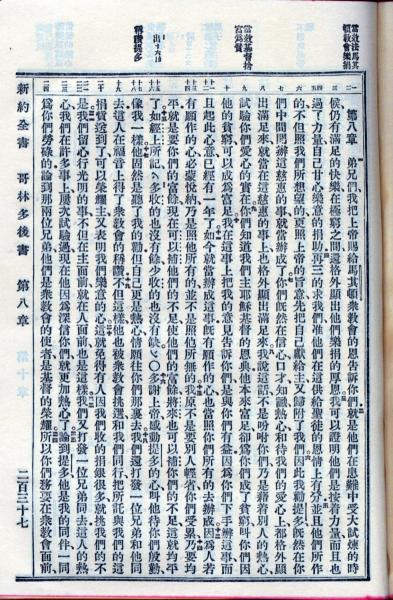 當效法馬其
頓教會樂捐
當效基督捨
富爲貧
稱讚提多
第八章 弟兄們我把上帝賜給馬其頓衆教會的恩告訴你們就是他們在患難中受大試煉的時
候仍有滿足的快樂在極窮之間還格外顯出他們樂捐的厚恩我可以證明他們是按着力量而且也
過了力量自己甘心樂意的捐助再三的求我們准他們在這供給聖徒的恩情上有分並且他們所作
的不但照我們所想望的更照上帝的旨意先把自己獻給主又歸附了我們因此我勸提多旣然在你
們中間開辦這慈惠的事就當辦成了你們旣然在信心口才知識熱心和待我們的愛心上都格外顯
出滿足來就當在這慈惠的事上也格外顯出滿足來我說這話不是吩咐你們乃是藉着別人的熱心
試驗你們愛心的實在你們知道我們主耶穌基督的恩典他本來富足卻爲你們成了貧窮叫你們因
他的貧窮可以成爲富足我在這事上把我的意見告訴你們是與你們有益因爲你們下手辦這事而
且起此心意已經有一年了如今就當辦成這事旣有願作的心也當照你們所有的去辦成因爲人若
有願作的心必蒙悅納乃是照他所有的並不是照他所無的我原不是要別人輕省你們受累乃要均
平就是要你們的富餘現在可以補他們的不足使他們的富餘將來也可以補你們的不足這就均平
了如經上所記多收的也沒有餘少收的也沒有缺〇多謝上帝感動提多的心叫他待你們殷勤
像我一樣他固然是聽了我的勸但自己更是熱心情願往你們那裏去我們還打發一位兄弟和他同
去這人在福音上得了衆教會的稱讚不但這樣他也被衆教會挑選和我們同行把所託與我們的這
捐貲送到了可以榮耀主又表明我們樂意的心這就免得有人因我們收的捐銀很多就挑我們的不
是我們留心行光明的事不但在主面前就在人面前也是這樣我們又打發一位兄弟同去這人的熱
心我們在許多事上屢次試驗過現在他因爲深信你們就更加熱心了論到提多他是我的同伴一同
爲你們勞碌的論到那兩位兄弟他們是衆教會的使者是基督的榮耀所以你們務要在衆教會面前
新約全書 哥林多後書 第八章 二百三十七